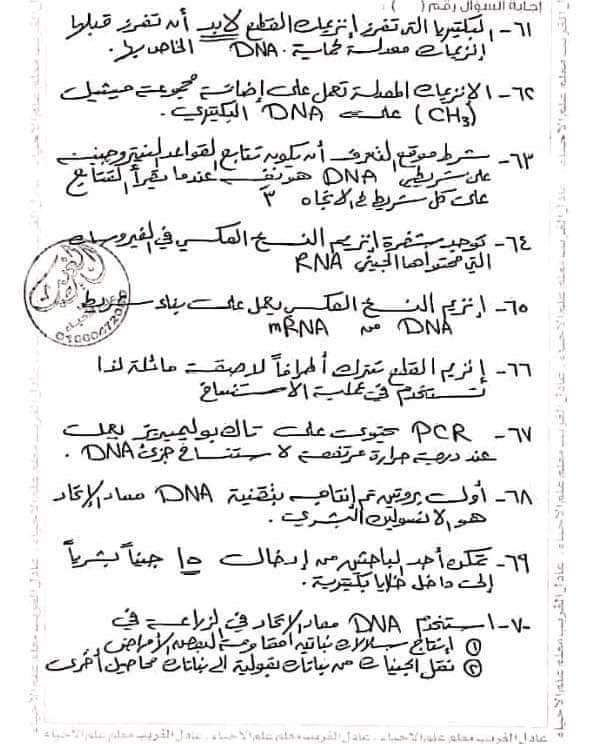 إجابة السؤال رقم ( )
٦١- البكتيريا التى تفرز إنزيمات القطع لابد أن تفرز قبلها
إنزيمات معدلة لحماية DNA الخاص بها.
٦٢- الإنزيمات المعدلة تعمل على إضافة مجموعة ميثيل
(CH3) على DNA البكتيري.
٦٣- شرط موقع التعرف أن يكون تتابع القواعد النيتروجينية
على شريطى DNA هو نفسه عندما يقرأ التتابع
على كل شريط فى الاتجاه 3
٦٤- توجد شفرة إنزيم النسخ العكسي في الفيروسات
التي محتواها الجيني RNA
٦٥- إنزيم النسخ العكسي يعمل على بناء شريط
DNA من mRNA
٦٦- إنزيم القطع يترك أطرافاً لاصقة مائلة لذا
تستخدم في عملية الاستنساخ
٦٧- PCR يحتوى على تاك بوليميريز يعمل
عند درجة حرارة مرتفعة لاستنساخ جزئ DNA.
٦٨- أول بروتين تم إنتاجه بتقنية DNA معاد الإتحاد
هو الانسولين البشري.
٦٩- تمكن أحد الباحثين من إدخال ١٥ جيناً بشرياً
إلى داخل خلايا بكتيرية.
٧٠- استخدم DNA معاد الاتحاد في الزراعة في
① إنتاج سلالات نباتية مقاومة لبعض الأمراض
② نقل الجينات من نباتات بقولية الى نباتات محاصيل أخرى
عادل الغريب معلم علم الاحياء